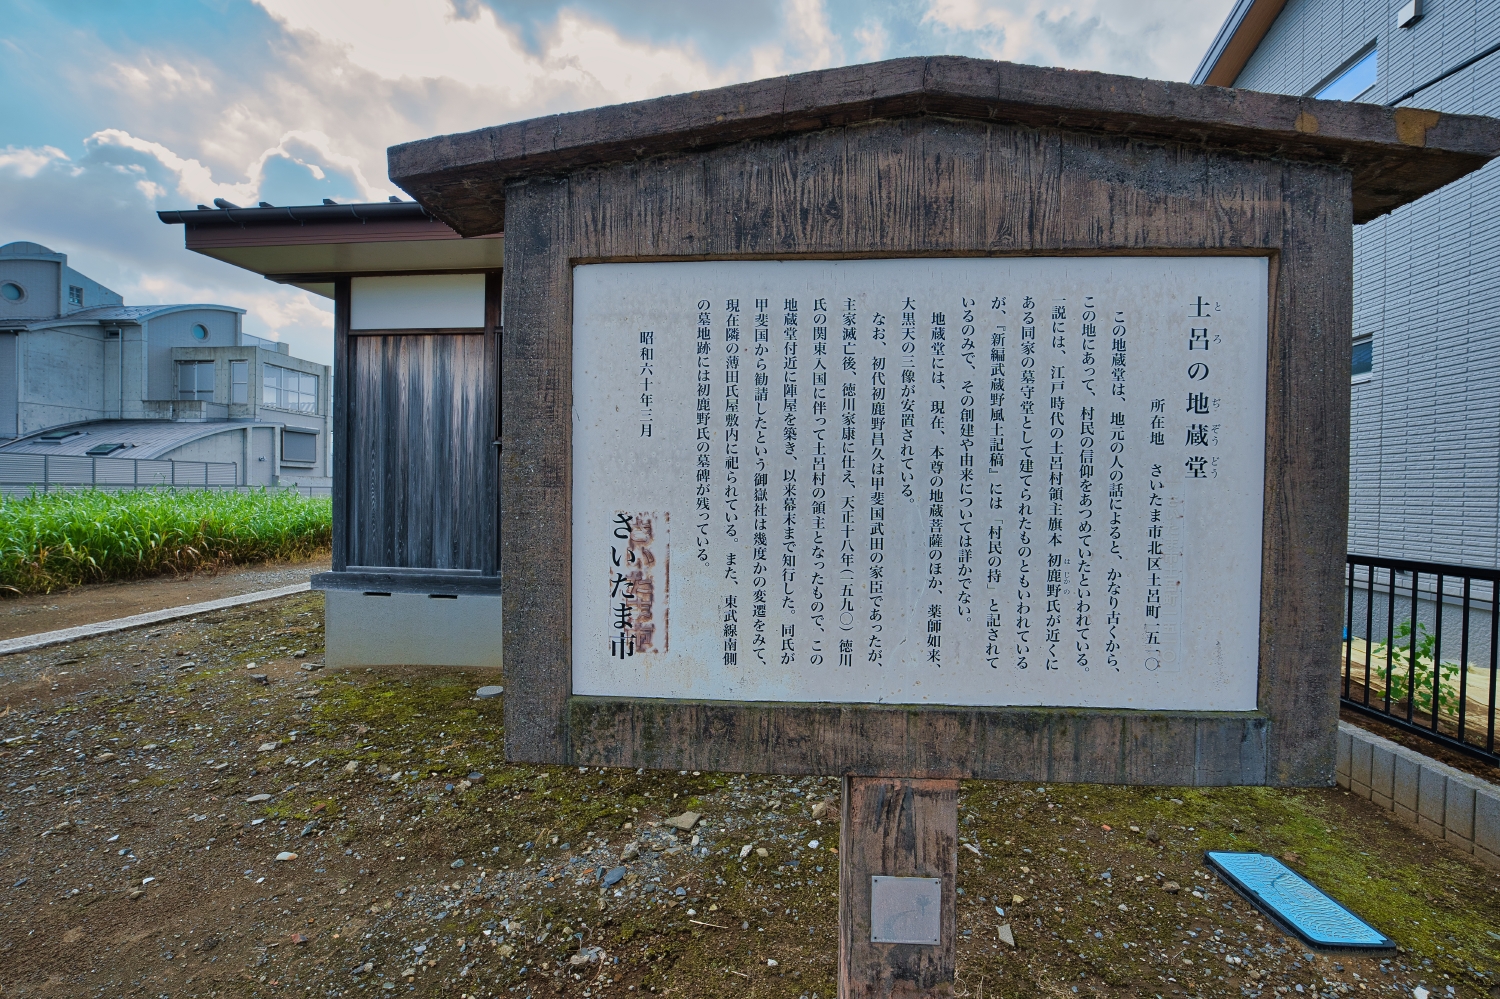 土呂の地蔵堂
とろ ぢぞうどう
所在地 さいたま市北区土呂町一五一〇
この地蔵堂は、地元の人の話によると、かなり古くから、
この地にあって、村民の信仰をあつめていたといわれている。
一説には、江戸時代の土呂村領主旗本 初鹿野氏が近くに
はじかの
ある同家の墓守堂として建てられたものともいわれている
が、『新編武蔵野風土記稿』には「村民の持」と記されて
いるのみで、その創建や由来については詳かでない。
地蔵堂には、現在、本尊の地蔵菩薩のほか、薬師如来、
大黒天の三像が安置されている。
なお、初代初鹿野昌久は甲斐国武田の家臣であったが、
主家滅亡後、徳川家康に仕え、天正十八年(一五九〇)徳川
氏の関東入国に伴って土呂村の領主となったもので、この
地蔵堂付近に陣屋を築き、以来幕末まで知行した。同氏が
甲斐国から勧請したという御嶽社は幾度かの変遷をみて、
現在隣の薄田氏屋敷内に祀られている。また、東武線南側
の墓地跡には初鹿野氏の墓碑が残っている。
昭和六十年三月
さいたま市